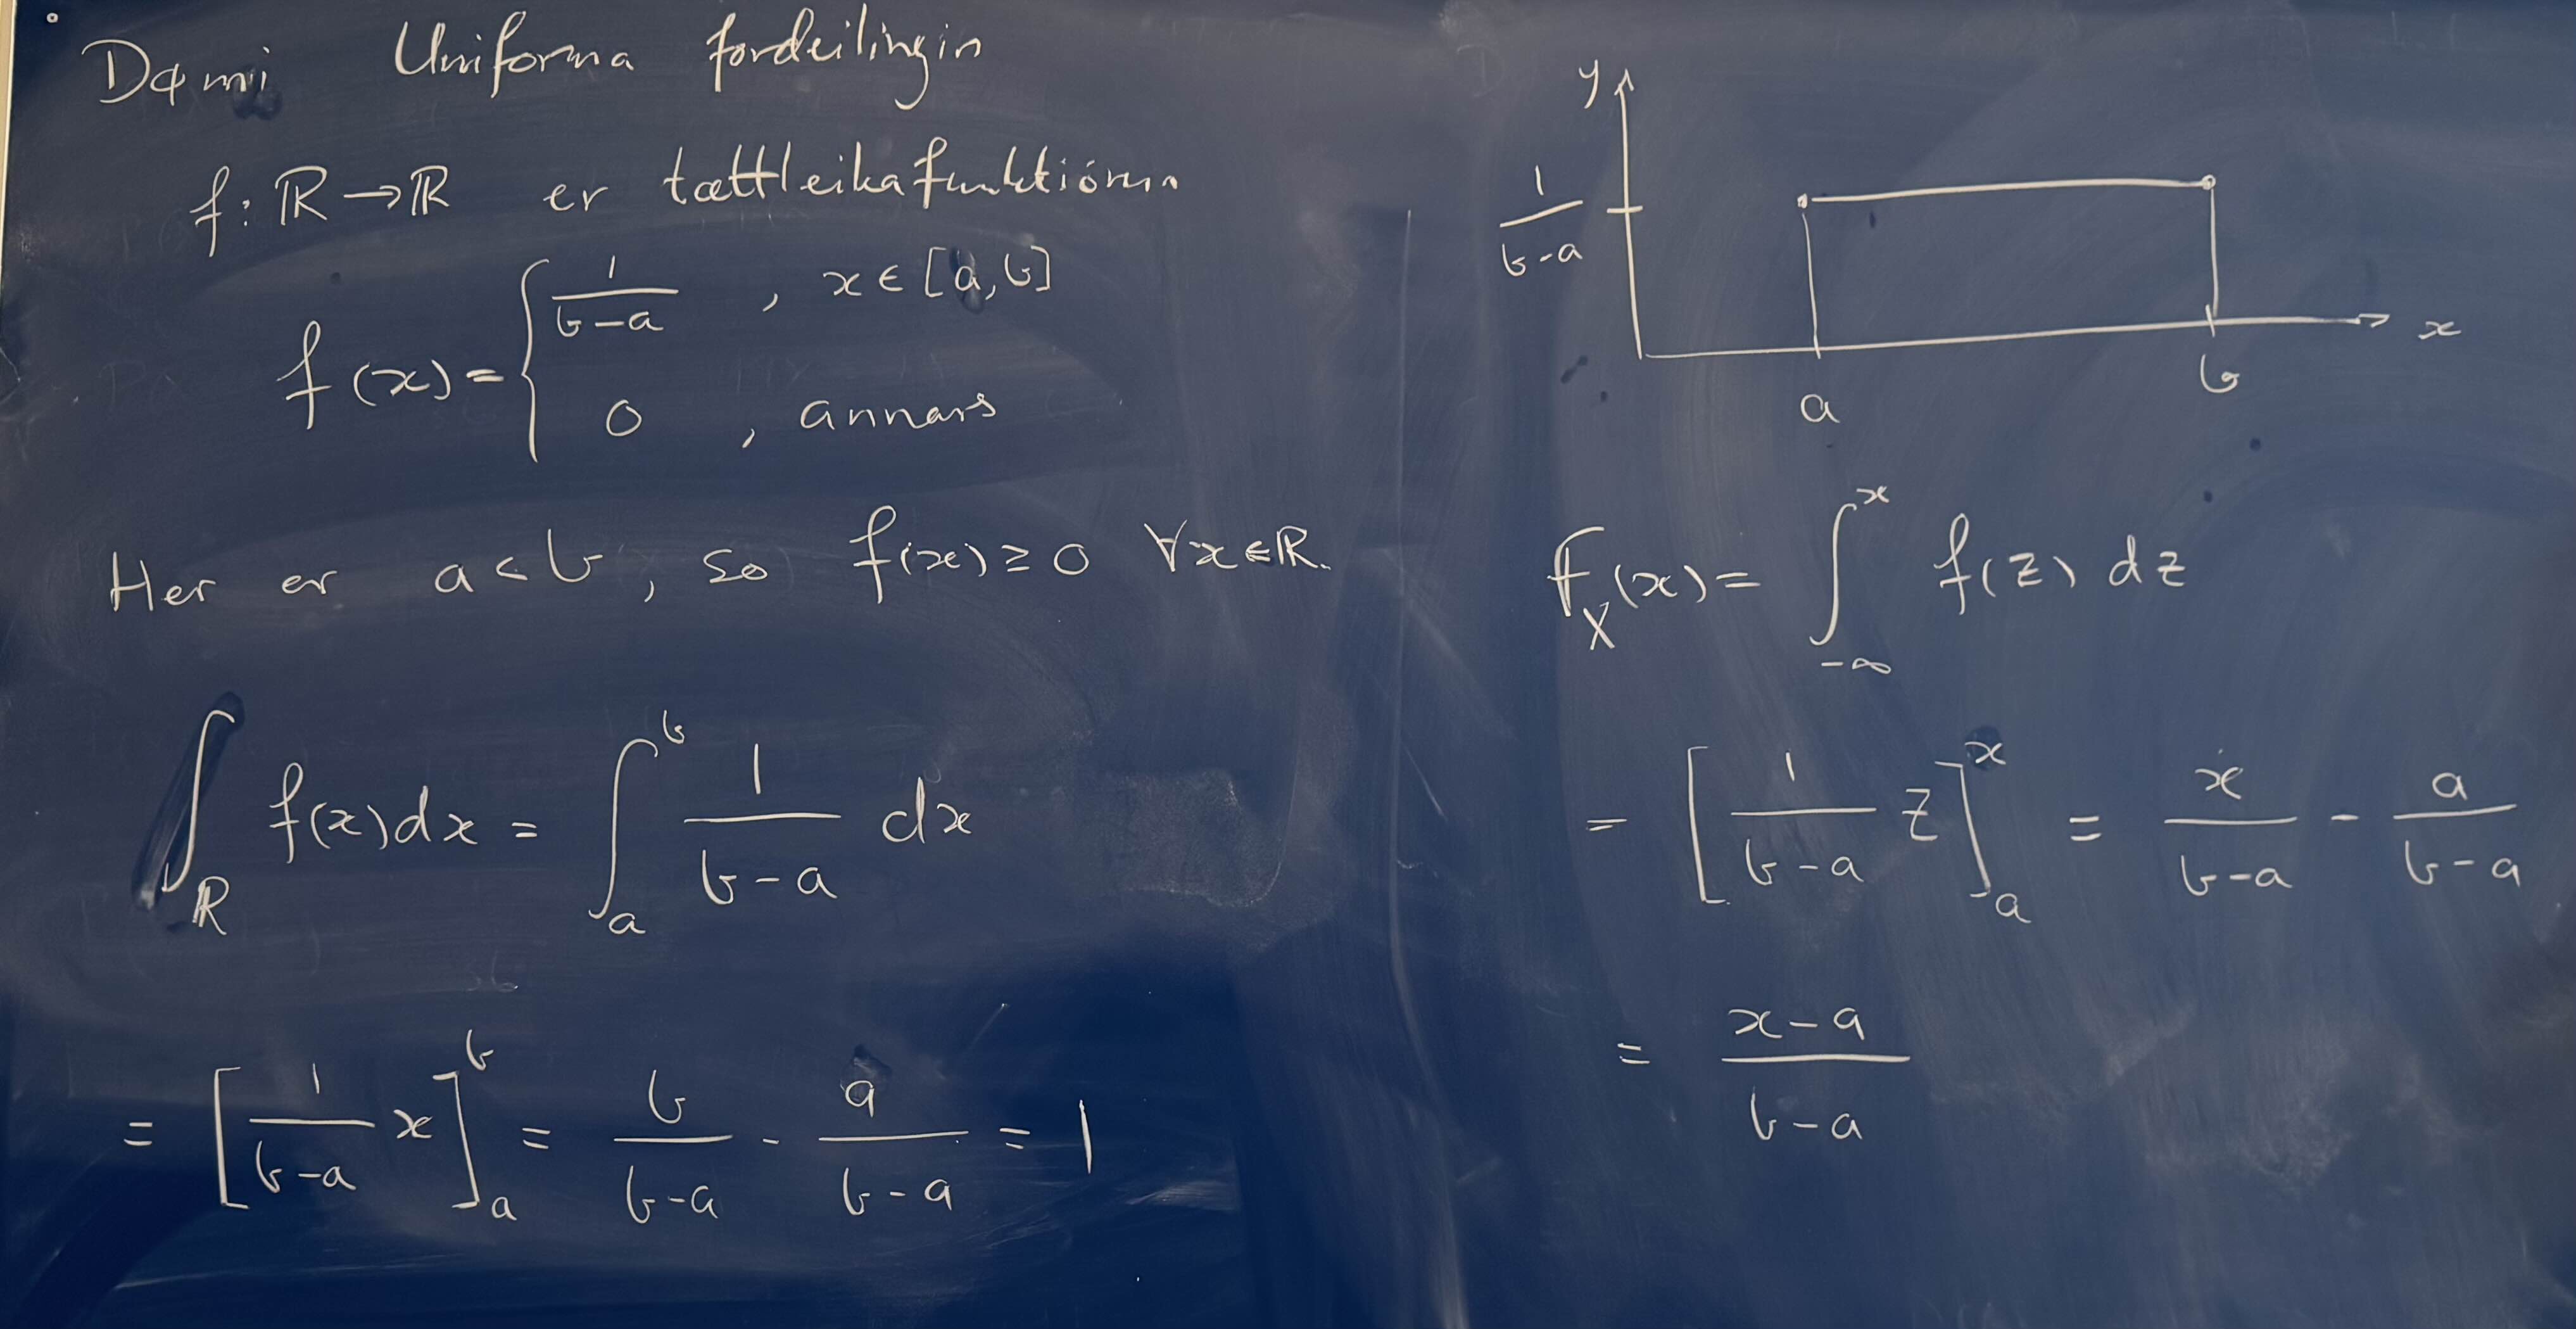 Dømi Uniforma fordeilingin
f: ℝ → ℝ er tættleikafunktiónin
f(x) = { 1/(b-a) , x ∈ [a,b]
0 , annars
Her er a < b, so f(x) ≥ 0 ∀x∈ℝ.
∫_ℝ f(x)dx = ∫_a^b 1/(b-a) dx
= [1/(b-a) x]_a^b = b/(b-a) - a/(b-a) = 1
y
1/(b-a)
x
a b
F_X(x) = ∫_{-∞}^x f(z) dz
= [1/(b-a) z]_a^x = x/(b-a) - a/(b-a)
= (x-a)/(b-a)